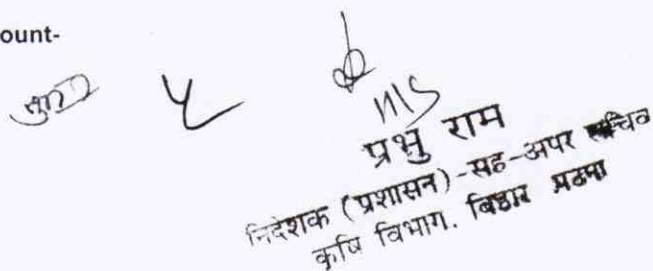 ount-
प्रभु राम
निदेशक (प्रशासन)-सह-अपर सचिव
कृषि विभाग. बिहार पटना